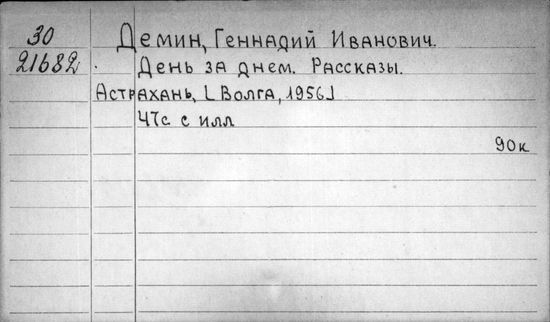 30 Демин, Геннадий Иванович.
21682 День за днем. Рассказы.
Астрахань, [Волга, 1956]
47с. с илл
90к